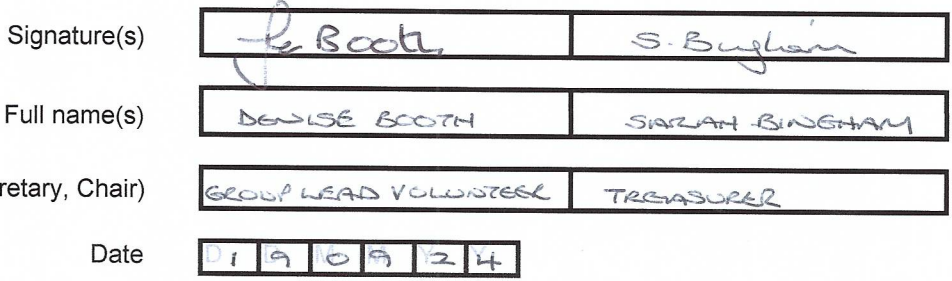 Signature(s) Booth S. Bingham
Full name(s) DENISE BOOTH SARAH BINGHAM
retary, Chair) GROUP LEAD VOLUNTEER TREASURER
Date 1 9 0 9 2 4